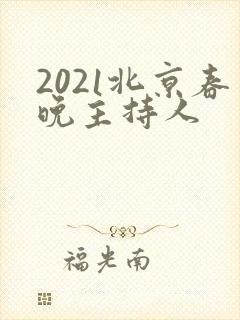 2021北京春
晚主持人
福光南